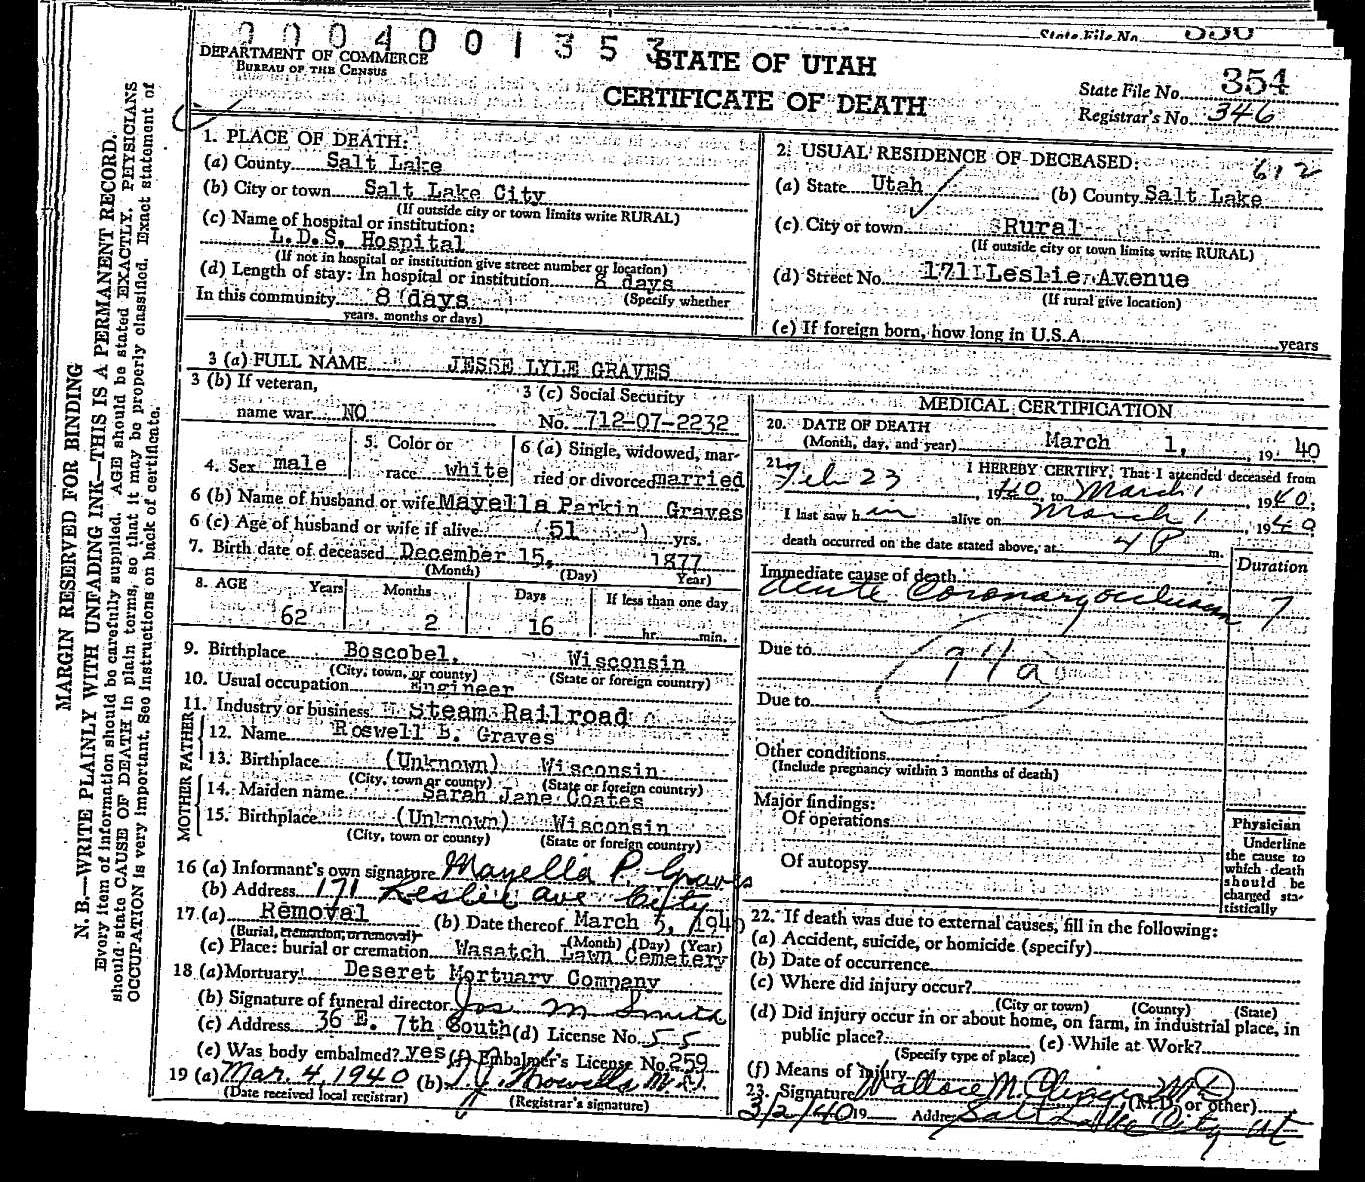 0004001353
DEPARTMENT OF COMMERCE
BUREAU OF THE CENSUS
STATE OF UTAH
CERTIFICATE OF DEATH
State File No. 354
Registrar's No. 346
MARGIN RESERVED FOR BINDING
N. B.—WRITE PLAINLY WITH UNFADING INK—THIS IS A PERMANENT RECORD.
Every item of information should be carefully supplied. AGE should be stated EXACTLY. PHYSICIANS
should state CAUSE OF DEATH in plain terms, so that it may be properly classified. Exact statement of
OCCUPATION is very important. See instructions on back of certificate.
1. PLACE OF DEATH:
(a) County Salt Lake
(b) City or town Salt Lake City
(If outside city or town limits write RURAL)
(c) Name of hospital or institution:
L.D.S. Hospital
(If not in hospital or institution give street number or location)
(d) Length of stay: In hospital or institution 8 days
(Specify whether
In this community 8 days
years, months or days)
2. USUAL RESIDENCE OF DECEASED: 612
(a) State Utah (b) County Salt Lake
(c) City or town Rural
(If outside city or town limits write RURAL)
(d) Street No. 171 Leslie Avenue
(If rural give location)
(e) If foreign born, how long in U.S.A. years
3 (a) FULL NAME JESSE LYLE GRAVES
3 (b) If veteran, name war NO
3 (c) Social Security No. 712-07-2232
4. Sex male
5. Color or race white
6 (a) Single, widowed, married or divorced married
6 (b) Name of husband or wife Mayella Parkin Graves
6 (c) Age of husband or wife if alive (51) yrs.
7. Birth date of deceased December 15, 1877
(Month) (Day) Year)
8. AGE Years Months Days If less than one day
62 2 16 hr. min.
9. Birthplace Boscobel, Wisconsin
(City, town, or county) (State or foreign country)
10. Usual occupation Engineer
11. Industry or business Steam Railroad
FATHER
12. Name Roswell B. Graves
13. Birthplace (Unknown) Wisconsin
(City, town or county) (State or foreign country)
MOTHER
14. Maiden name Sarah Jane Coates
15. Birthplace (Unknown) Wisconsin
(City, town or county) (State or foreign country)
16 (a) Informant's own signature Mayella P. Graves
(b) Address 171 Leslie Ave City
17. (a) Removal (b) Date thereof March 5, 1940
(Burial, cremation, or removal) (Month) (Day) (Year)
(c) Place: burial or cremation Wasatch Lawn Cemetery
18 (a) Mortuary Deseret Mortuary Company
(b) Signature of funeral director Jos M Smith
(c) Address 36 E. 7th South (d) License No. 55
(e) Was body embalmed? yes (f) Embalmer's License No. 259
19 (a) Mar. 4, 1940 (b)
(Date received local registrar) (Registrar's signature)
MEDICAL CERTIFICATION
20. DATE OF DEATH
(Month, day, and year) March 1, 19 40
21. I HEREBY CERTIFY, That I attended deceased from
Feb 23, 1940, to March 1 1940;
I last saw h im alive on March 1 1940
death occurred on the date stated above, at 4 P m.
Immediate cause of death Duration
Acute Coronary occlusion 7
Due to 94a
Due to
Other conditions
(Include pregnancy within 3 months of death)
Major findings:
Of operations
Of autopsy
Physician
Underline
the cause to
which death
should be
charged sta-
tistically
22. If death was due to external causes, fill in the following:
(a) Accident, suicide, or homicide (specify)
(b) Date of occurrence
(c) Where did injury occur?
(City or town) (County) (State)
(d) Did injury occur in or about home, on farm, in industrial place, in
public place? (e) While at Work?
(Specify type of place)
(f) Means of injury
23. Signature Wallace M. MD (M.D. or other)
3/2/40 19 Address Salt Lake City Ut